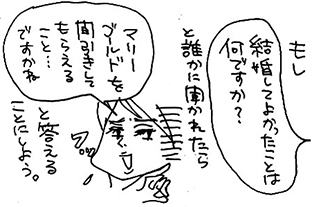 もし
結婚してよかったことは
何ですか?
と誰かに聞かれたら
マリー
ゴールドを
間引きして
もらえる
こと…
ですかね
と答える
ことにしよう。